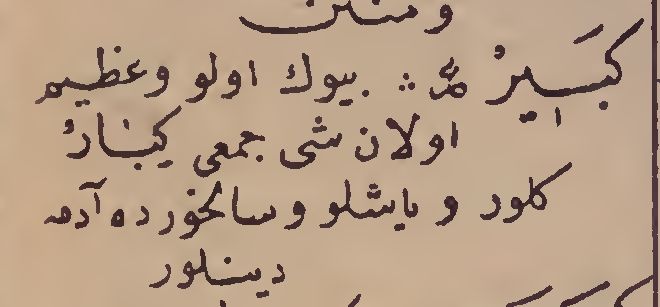 كَبِيرٌ ؞ بيوك اولو وعظيم
اولان شى جمعى كِبَارْ
كلور و ياشلو و سالخورده آدمه
دينلور